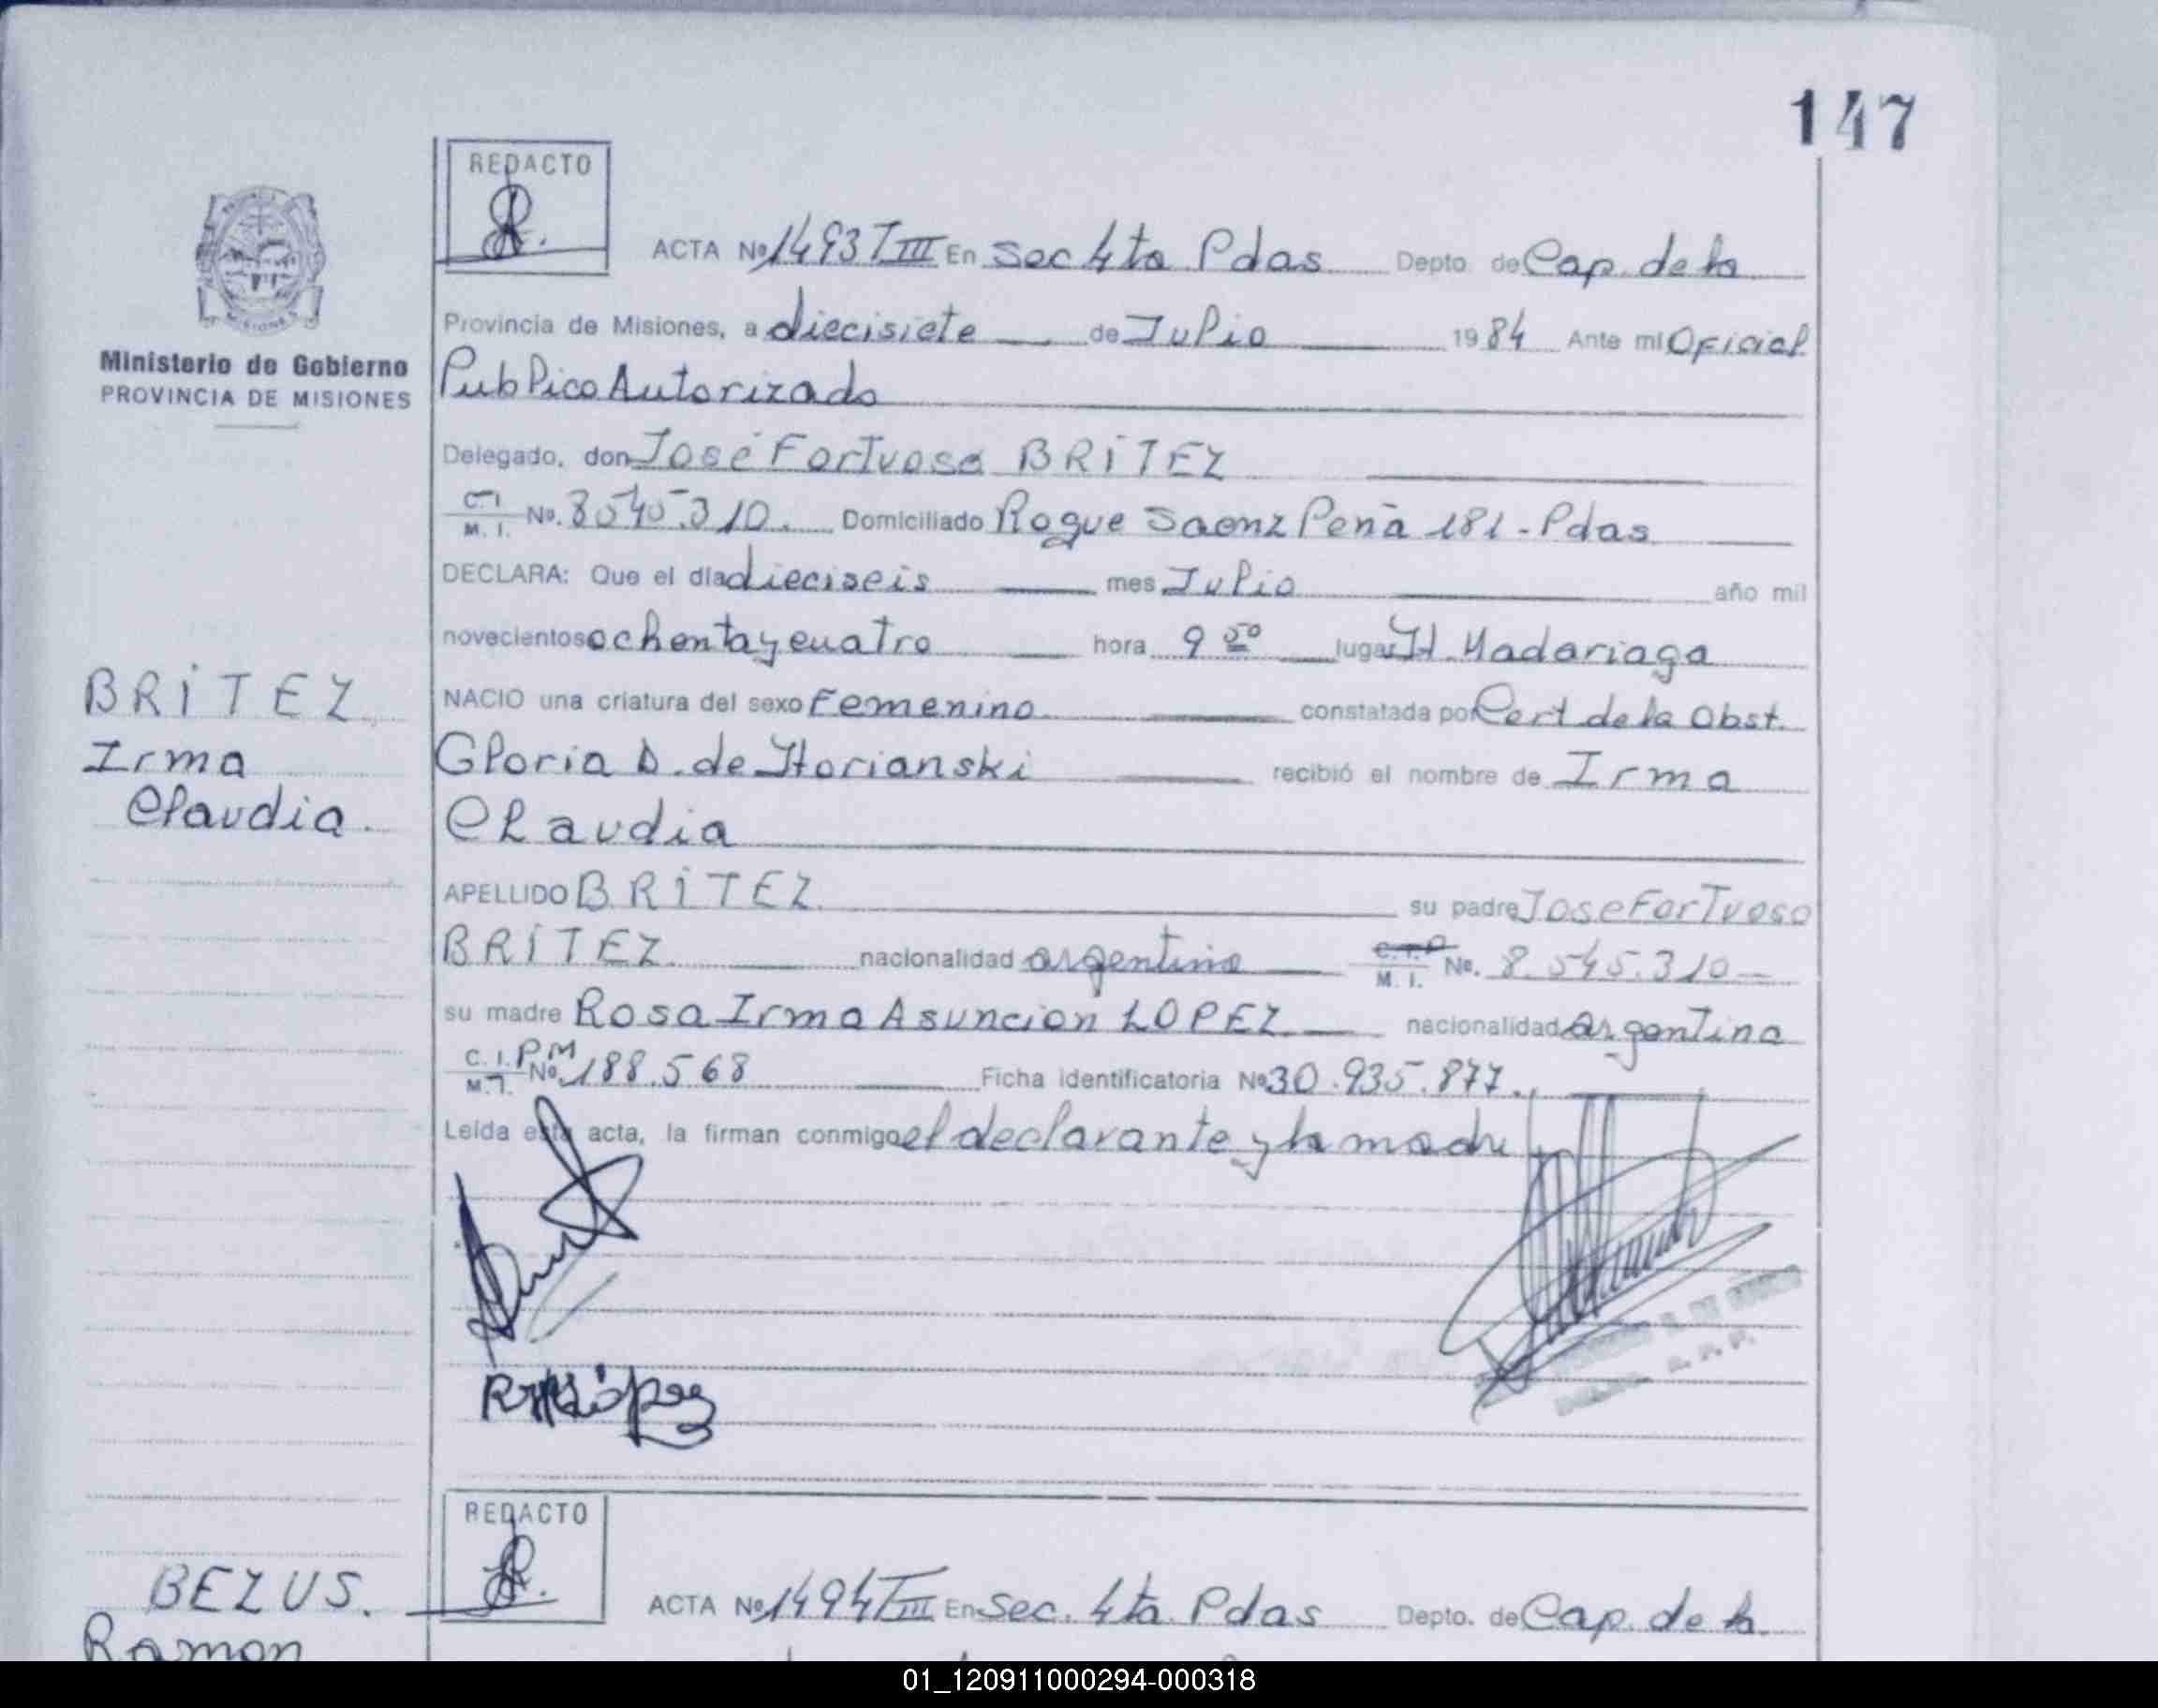 147
REDACTO
ACTA Nº 1493 T III En Sec 4ta Pdas Depto de Cap. de la
MISIONES
Provincia de Misiones, a diecisiete de Julio 1984 Ante mi Oficial
Ministerio de Gobierno
PROVINCIA DE MISIONES
Publico Autorizado
Delegado, don José Fortuoso BRITEZ
C.I. M. I. Nº. 8545.310. Domiciliado Roque Saenz Peña 181 - Pdas
DECLARA: Que el día dieciseis mes Julio año mil
novecientos ochenta y cuatro hora 9 50 lugar H. Madariaga
BRITEZ
Irma
Claudia.
NACIO una criatura del sexo Femenino constatada por Cert de la Obst.
Gloria D. de Horianski recibió el nombre de Irma
Claudia
APELLIDO BRITEZ su padre Jose Fortuoso
BRITEZ nacionalidad argentina M. I. No. 8.545.310
su madre Rosa Irma Asuncion LOPEZ nacionalidad argentina
C. I. P.M M.I. Nº 188.568 Ficha identificatoria Nº 30.935.877.
Leída esta acta, la firman conmigo el declarante y la madre
López
REDACTO
BEZUS.
Ramon
ACTA Nº 1494 T III En Sec. 4ta Pdas Depto. de Cap. de la
01_120911000294-000318